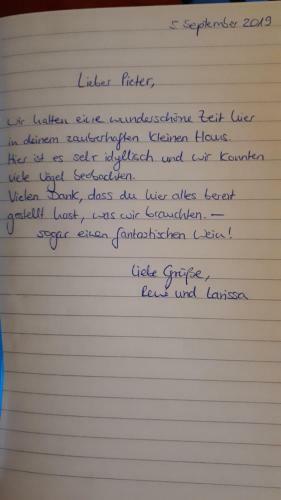 5 September 2019
Lieber Pieter,
wir hatten eine wunderschöne Zeit hier
in deinem zauberhaften kleinen Haus.
Hier ist es sehr idyllisch und wir konnten
viele Vögel beobachten.
Vielen Dank, dass du hier alles bereit
gestellt hast, was wir brauchten. —
sogar einen fantastischen Wein!
Liebe Grüße,
René und Larissa